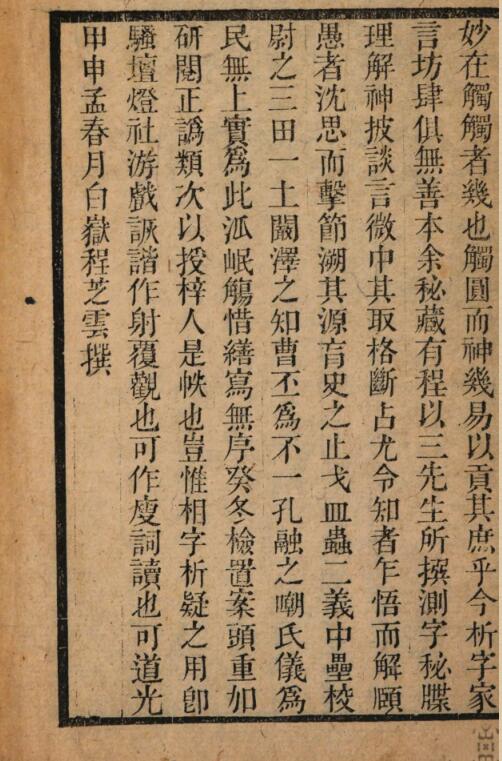 妙在觸觸者幾也觸圓而神幾易以貢其庶乎今析字家
言坊肆俱無善本余秘藏有程以三先生所撰測字秘牒
理解神披談言微中其取格斷占尤令知者乍悟而解頤
愚者沈思而擊節溯其源肓史之止戈皿蟲二義中壘校
尉之三田一土闞澤之知曹丕為不一孔融之嘲氏儀為
民無上實為此泒岷觴惜繕寫無序癸冬檢置案頭重加
研閱正譌類次以授梓人是帙也豈惟相字析疑之用卽
騷壇燈社游戲詼諧作射覆觀也可作廋詞讀也可道光
甲申孟春月白嶽程芝雲撰